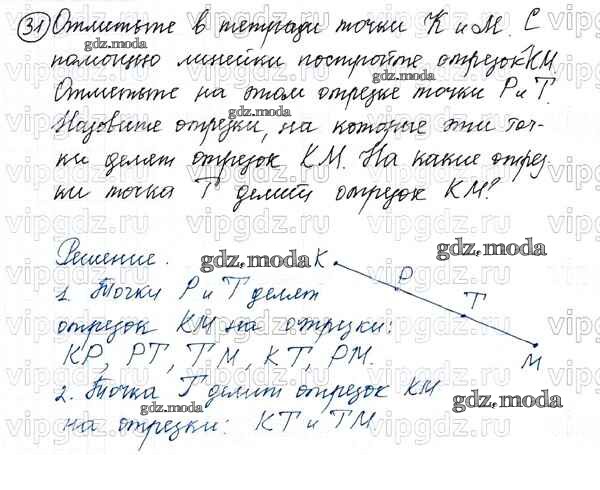 31 Отметьте в тетради точки К и М. С
помощью линейки постройте отрезок КМ.
Отметьте на этом отрезке точки Р и Т.
Назовите отрезки, на которые эти точ-
ки делят отрезок КМ. На какие отрез
ки точка Т делит отрезок КМ?
Решение.
К
Р
Т
М
1. Точки Р и Т делят
отрезок КМ на отрезки:
КР, РТ, ТМ, КТ, РМ.
2. Точка Т делит отрезок КМ
на отрезки: КТ и ТМ.
gdz.moda
gdz.moda
gdz.moda
gdz.moda
gdz.moda
gdz.moda
gdz.moda
gdz.moda
vipgdz.ru